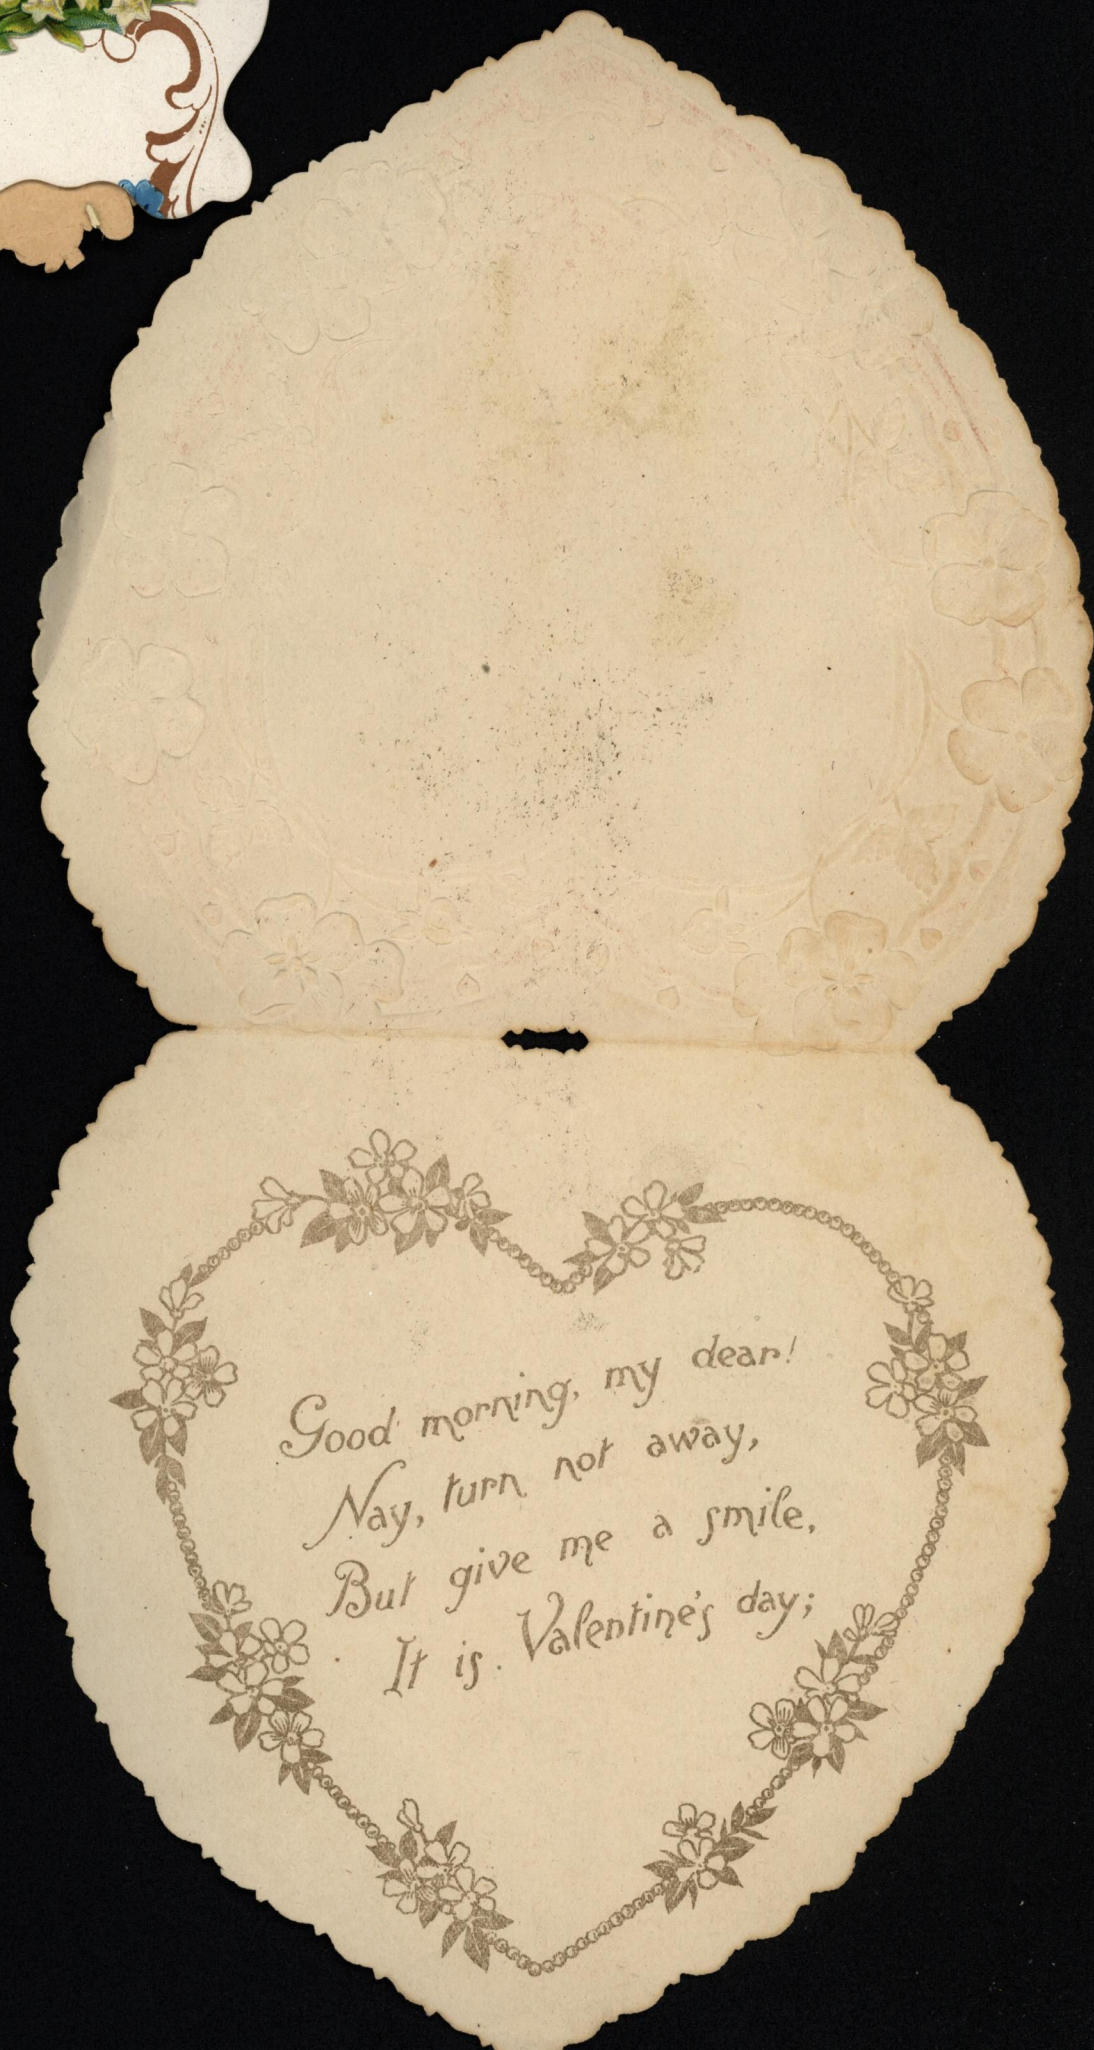 Good morning, my dear!
Nay, turn not away,
But give me a smile,
It is Valentine's day;